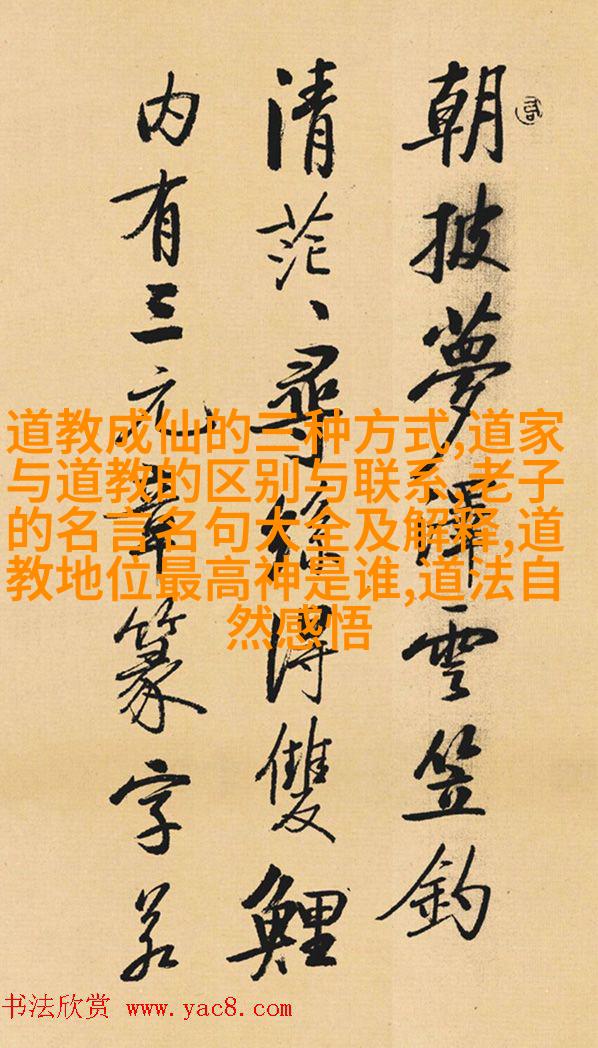 朝披夢澤雲笠釣
清茫、尋絲得雙鯉
内有三元章篆字若
道教成仙的三种方式,道家
与道教的区别与联系,老子
的名言名句大全及解释,道
教地位最高神是谁,道法自
然感悟
书法欣赏 www.yac8.com